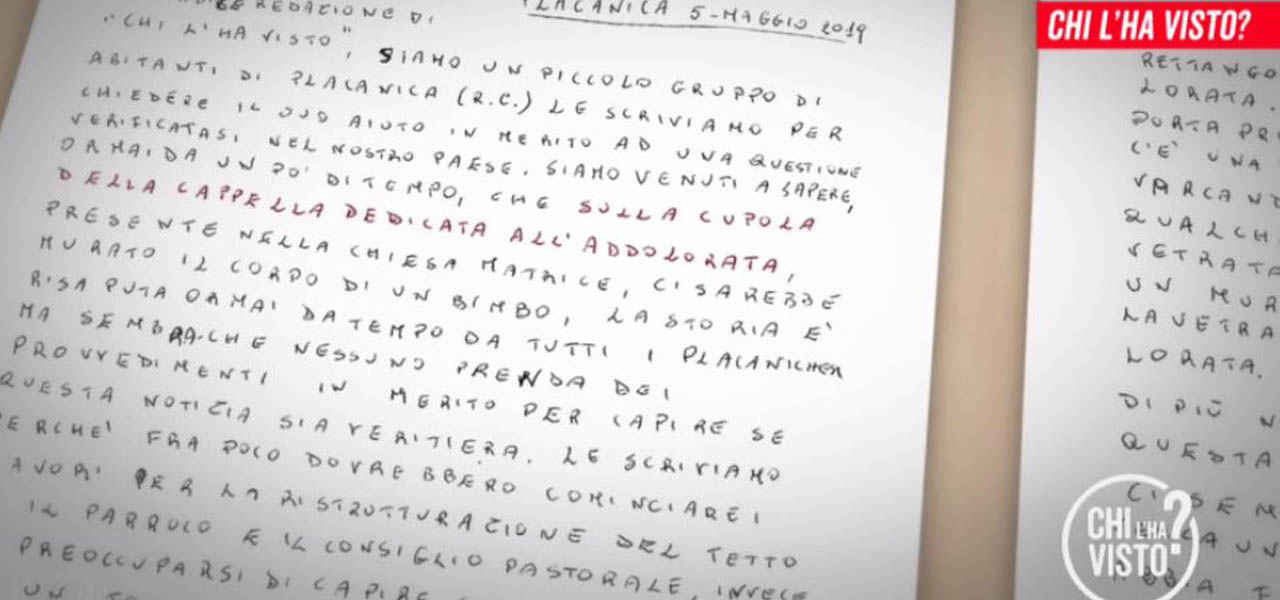 REDAZIONE DI
PLACANICA 5-MAGGIO 2019
"CHI L'HA VISTO", SIAMO UN PICCOLO GRUPPO DI
ABITANTI DI PLACANICA (R.C.) LE SCRIVIAMO PER
CHIEDERE IL SUO AIUTO IN MERITO AD UNA QUESTIONE
VERIFICATASI NEL NOSTRO PAESE. SIAMO VENUTI A SAPERE,
ORMAI DA UN PO' DI TEMPO, CHE SULLA CUPOLA
DELLA CAPPELLA DEDICATA ALL'ADDOLORATA,
PRESENTE NELLA CHIESA MATRICE, CI SAREBBE
MURATO IL CORPO DI UN BIMBO, LA STORIA E'
RISAPUTA ORMAI DA TEMPO DA TUTTI I PLACANICHESI
MA SEMBRA CHE NESSUNO PRENDA DEI
PROVVEDIMENTI IN MERITO PER CAPIRE SE
QUESTA NOTIZIA SIA VERITIERA. LE SCRIVIAMO
PERCHE' FRA POCO DOVREBBERO COMINCIARE I
LAVORI PER LA RISTRUTTURAZIONE DEL TETTO
IL PARROCO E IL CONSIGLIO PASTORALE, INVECE
PREOCCUPARSI DI CAPIRE
UN
CHI L'HA VISTO?
RETTANGO
LORATA.
PORTA PR
C'E' UNA
VARCANT
QUALCH
VETRATA
UN MUR
LA VETRA
LORATA.
DI PIÙ N
QUESTA
CI SE N
LA UN
CHI L'HA VISTO?